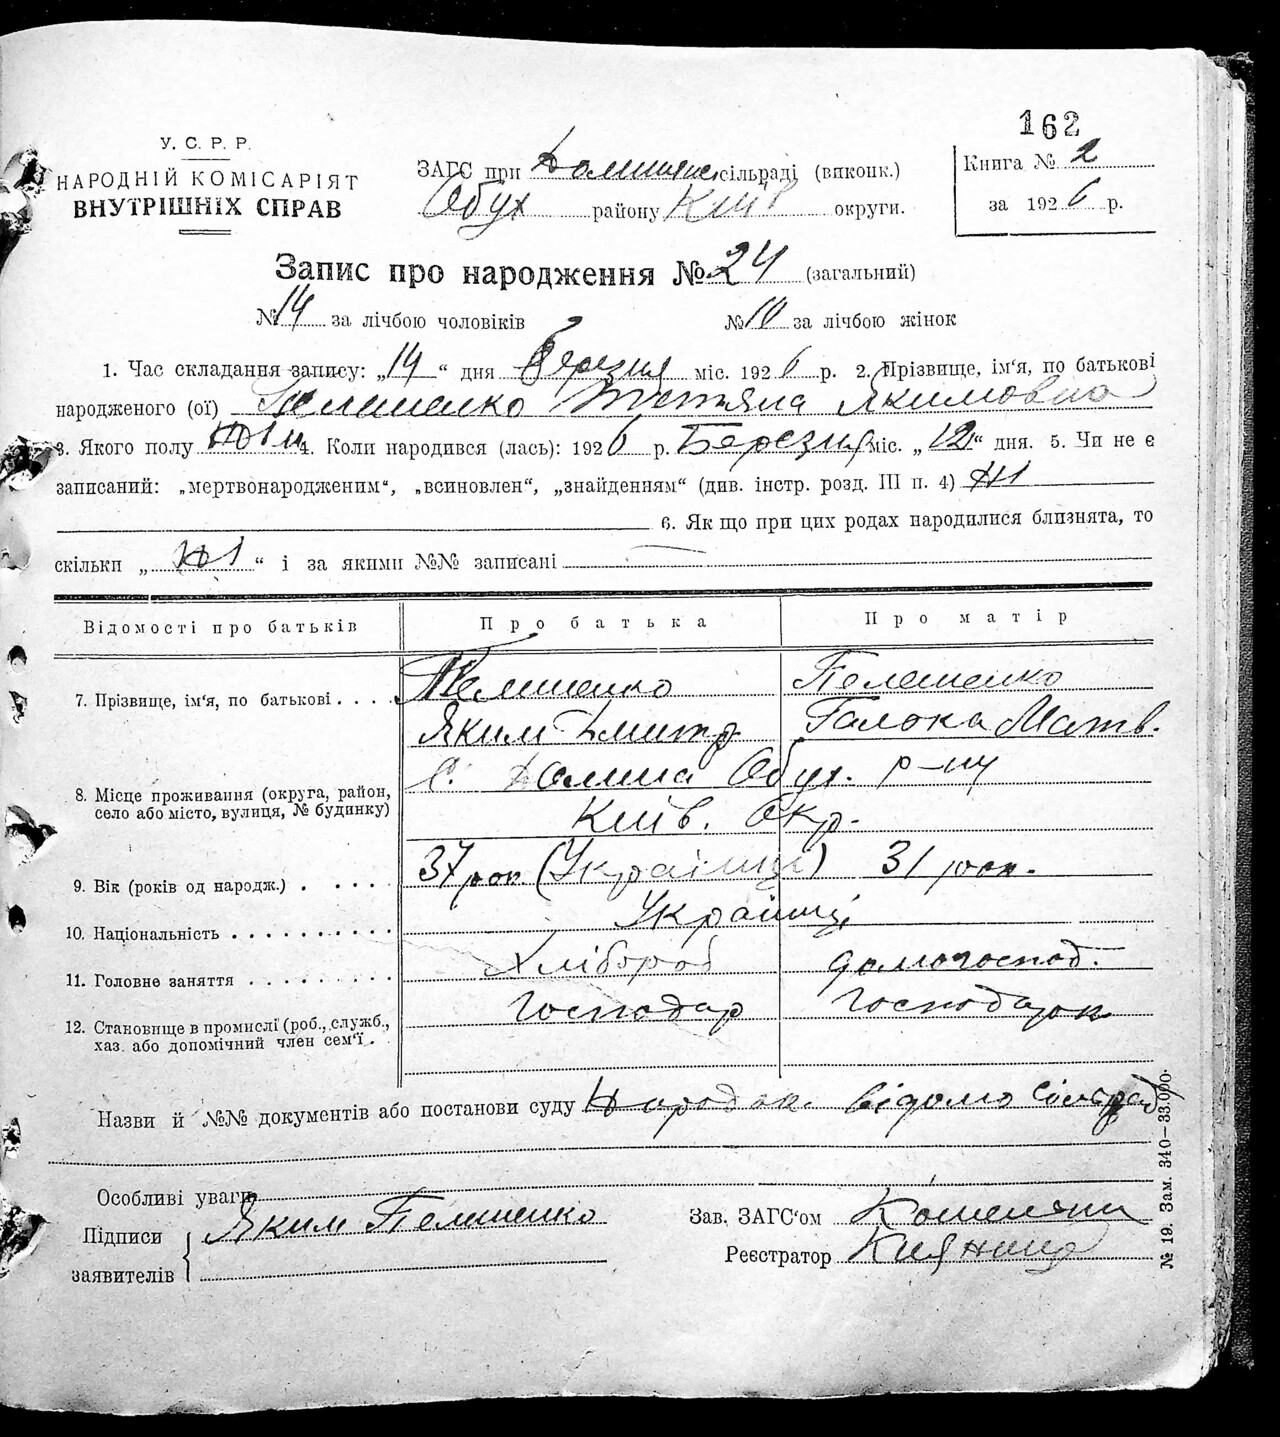 162
У. С. Р. Р.
НАРОДНІЙ КОМІСАРІЯТ
ВНУТРІШНІХ СПРАВ
ЗАГС при сільраді (виконк.)
Обух району Київ округи.
Книга № 2
за 1926 р.
Запис про народження № 24 (загальний)
№ 14 за лічбою чоловіків № 10 за лічбою жінок
1. Час складання запису: „14“ дня Березня міс. 1926 р. 2. Прізвище, ім‘я, по батькові
народженого (ої) Якимовна
3. Якого полу 4. Коли народився (лась): 1926 р. Березня міс. „12“ дня. 5. Чи не є
записаний: „мертвонародженим“, „всиновлен“, „знайденням“ (див. інстр. розд. III п. 4) Ні
6. Як що при цих родах народилися близнята, то
скільки „Ні“ і за якими №№ записані
Відомості про батьків Про батька Про матір
7. Прізвище, ім‘я, по батькові . . . .
Яким Дмитр Матв.
8. Місце проживання (округа, район,
село або місто, вулиця, № будинку)
с. Долина Обух. р-ну
Київ. Окр.
9. Вік (років од народж.) . . . . . 37 рок. (Українці) 31 рок.
10. Національність . . . . . . . . . . Українці
11. Головне заняття . . . . . . . . . Хлібороб домогоспод.
12. Становище в промислі (роб., служб.,
хаз. або допомічний член сем‘ї . .
Господар
Назви й №№ документів або постанови суду відомо
Особливі уваги
Підписи
заявителів
Яким
Зав. ЗАГС‘ом
Реєстратор
№ 19. Зам. 340—33.000.